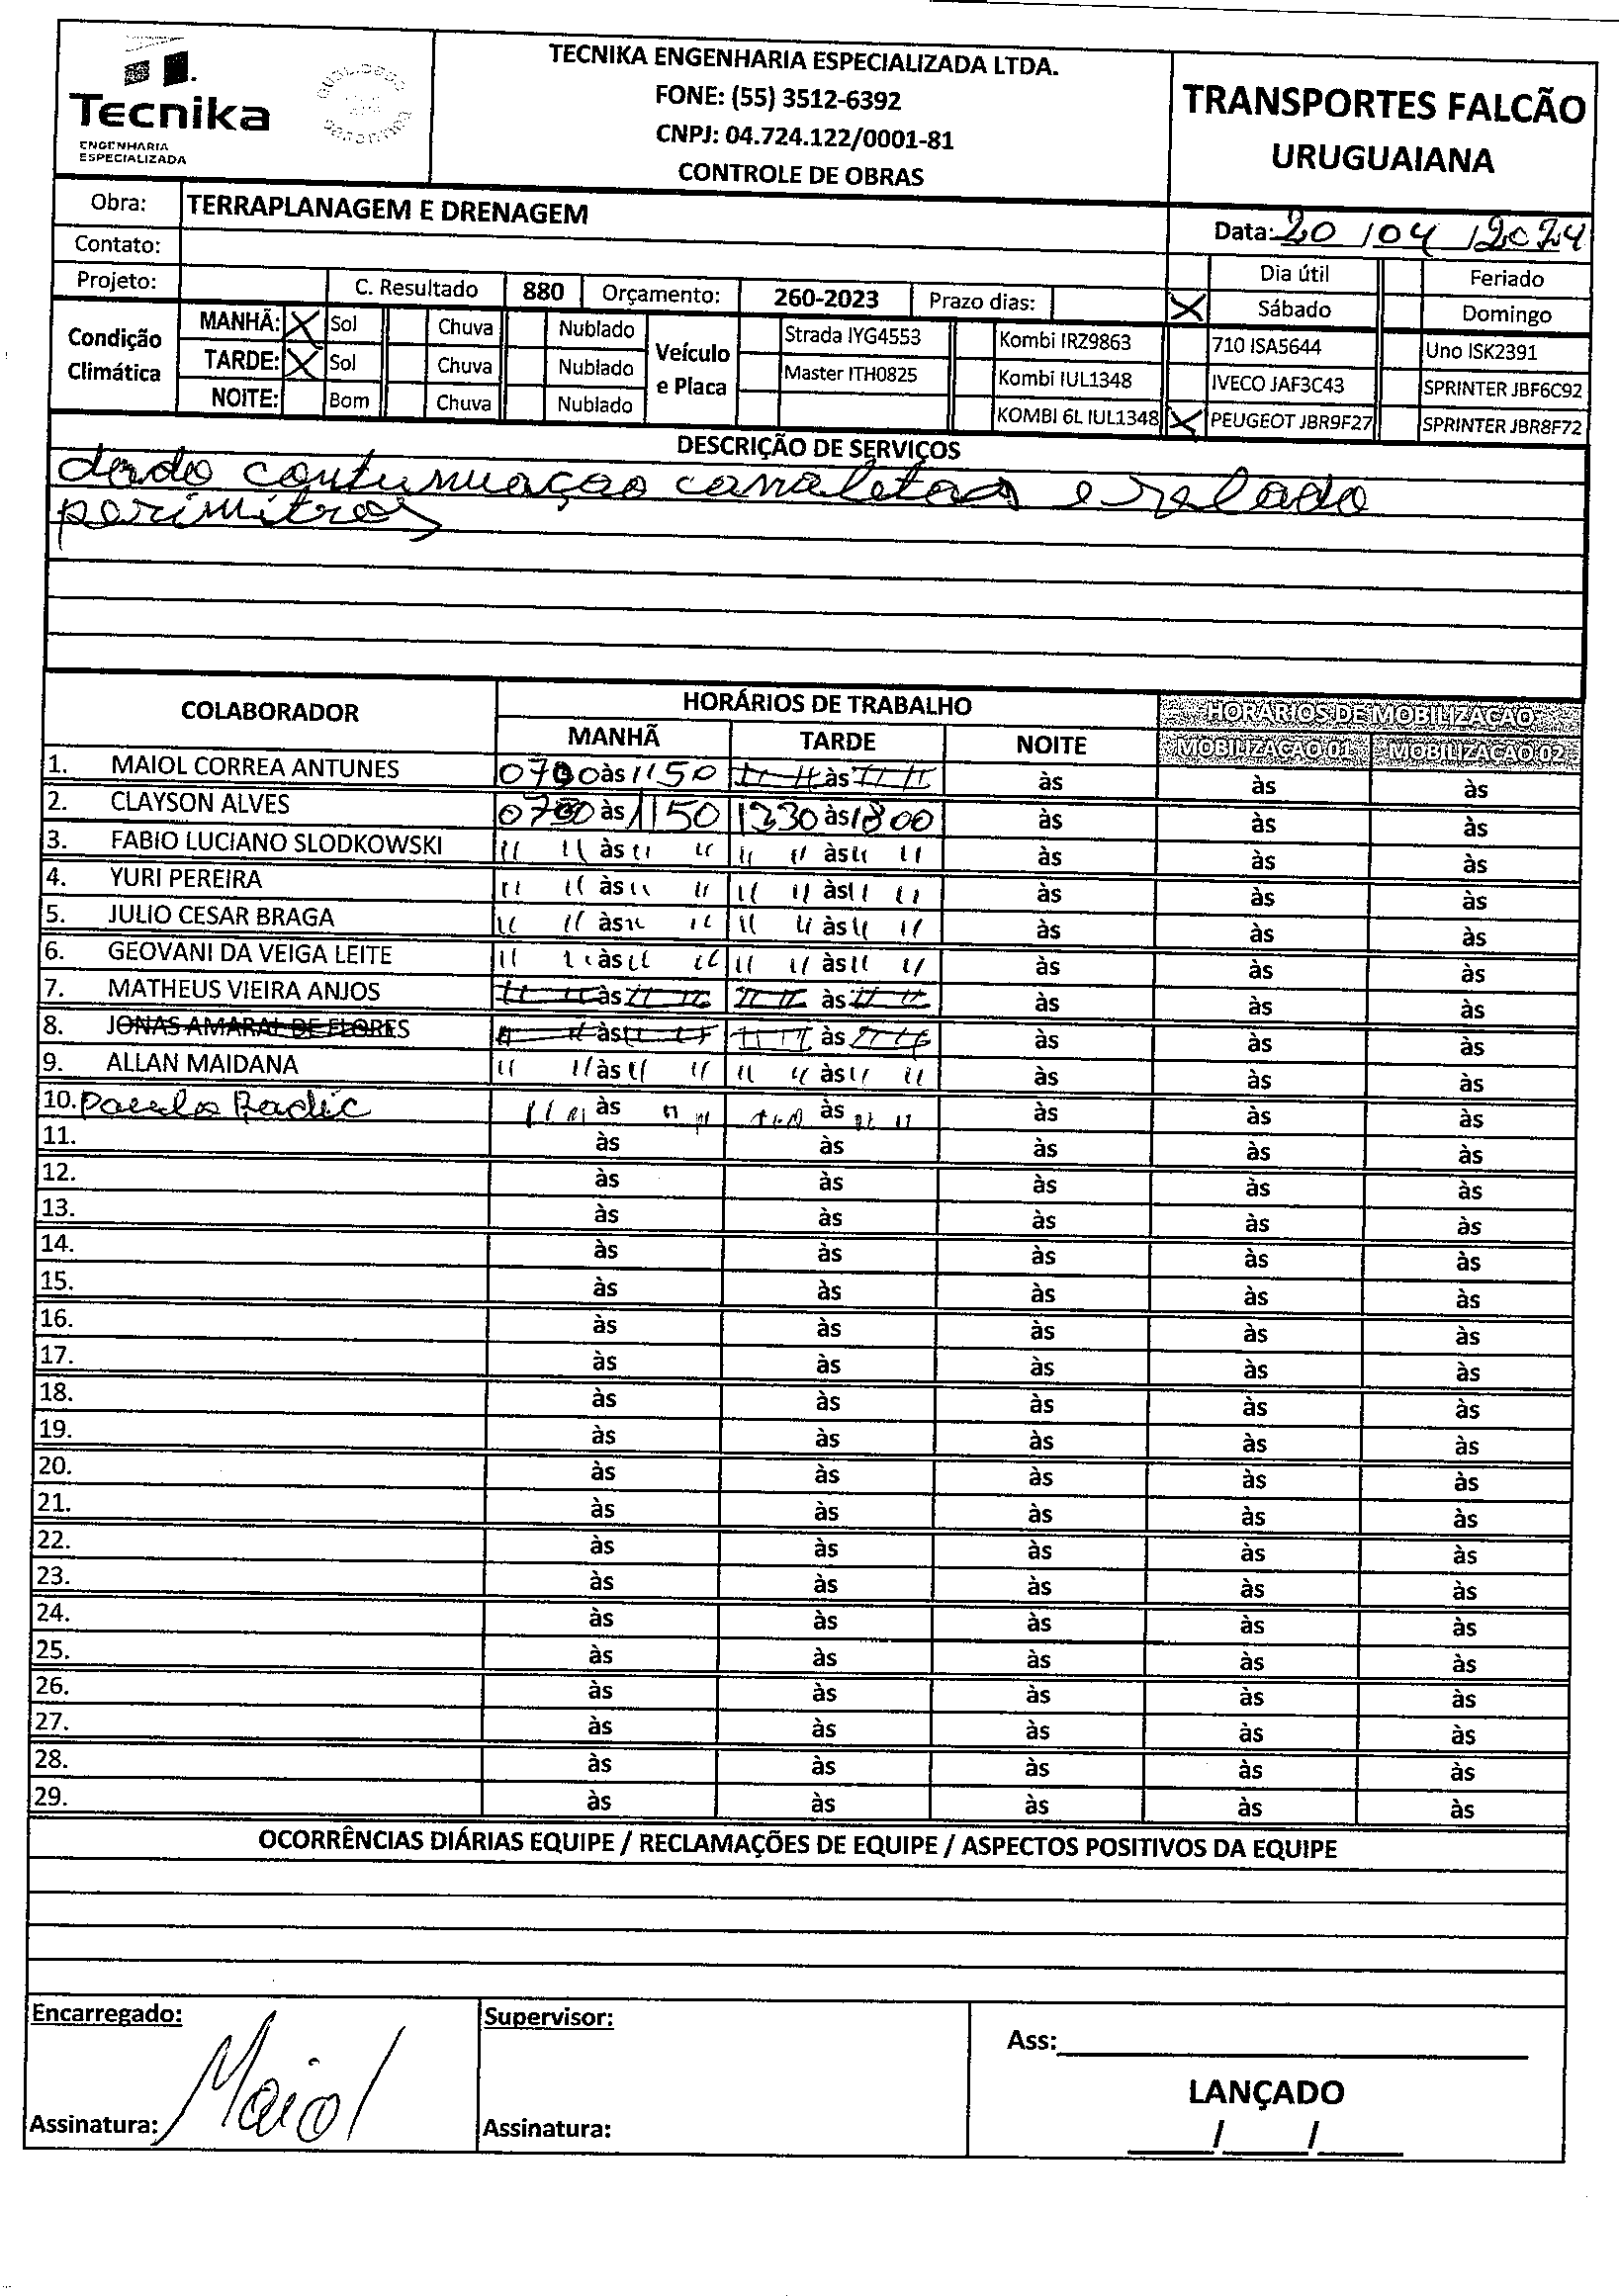 Tecnika
ENGENHARIA
ESPECIALIZADA
TECNIKA ENGENHARIA ESPECIALIZADA LTDA.
FONE: (55) 3512-6392
CNPJ: 04.724.122/0001-81
CONTROLE DE OBRAS
TRANSPORTES FALCÃO
URUGUAIANA
Obra: TERRAPLANAGEM E DRENAGEM
Data: 20 / 04 / 2024
Contato:
Dia útil Feriado
Projeto: C. Resultado 880 Orçamento: 260-2023 Prazo dias:
X Sábado Domingo
Condição Climática
MANHÃ: X Sol Chuva Nublado
TARDE: X Sol Chuva Nublado
NOITE: Bom Chuva Nublado
Veículo e Placa
Strada IYG4553 Kombi IRZ9863 710 ISA5644 Uno ISK2391
Master ITH0825 Kombi IUL1348 IVECO JAF3C43 SPRINTER JBF6C92
KOMBI 6L IUL1348 X PEUGEOT JBR9F27 SPRINTER JBR8F72
DESCRIÇÃO DE SERVIÇOS
dando continuação canaletas e
perimitros
COLABORADOR HORÁRIOS DE TRABALHO HORÁRIOS DE MOBILIZAÇÃO
MANHÃ TARDE NOITE MOBILIZAÇÃO 01 MOBILIZAÇÃO 02
1. MAIOL CORREA ANTUNES 0700 às 1150 às às às às
2. CLAYSON ALVES 0700 às 1150 1330 às 1800 às às às
3. FABIO LUCIANO SLODKOWSKI " " às " " " " às " " às às às
4. YURI PEREIRA " " às " " " " às " " às às às
5. JULIO CESAR BRAGA " " às " " " " às " " às às às
6. GEOVANI DA VEIGA LEITE " " às " " " " às " " às às às
7. MATHEUS VIEIRA ANJOS às às às às às
8. JONAS AMARAL DE FLORES às às às às às
9. ALLAN MAIDANA " " às " " " " às " " às às às
10. Paulo " " às " " " " às " " às às às
11. às às às às às
12. às às às às às
13. às às às às às
14. às às às às às
15. às às às às às
16. às às às às às
17. às às às às às
18. às às às às às
19. às às às às às
20. às às às às às
21. às às às às às
22. às às às às às
23. às às às às às
24. às às às às às
25. às às às às às
26. às às às às às
27. às às às às às
28. às às às às às
29. às às às às às
OCORRÊNCIAS DIÁRIAS EQUIPE / RECLAMAÇÕES DE EQUIPE / ASPECTOS POSITIVOS DA EQUIPE
Encarregado: Supervisor:
Ass:
LANÇADO
Assinatura: Maiol Assinatura:
/ /